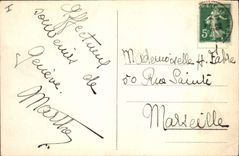 Affectueux
souvenirs de
Genève.
Marthe
Mademoiselle H. Fabre
50 Rue Sainte
Marseille
5c